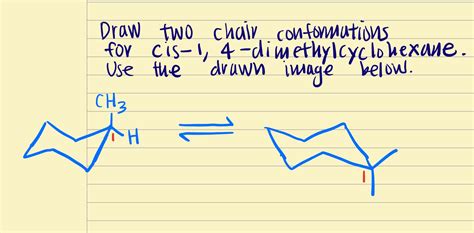 Draw two chair conformations
for cis-1, 4-dimethylcyclohexane.
Use the drawn image below.
CH3
H
1
1